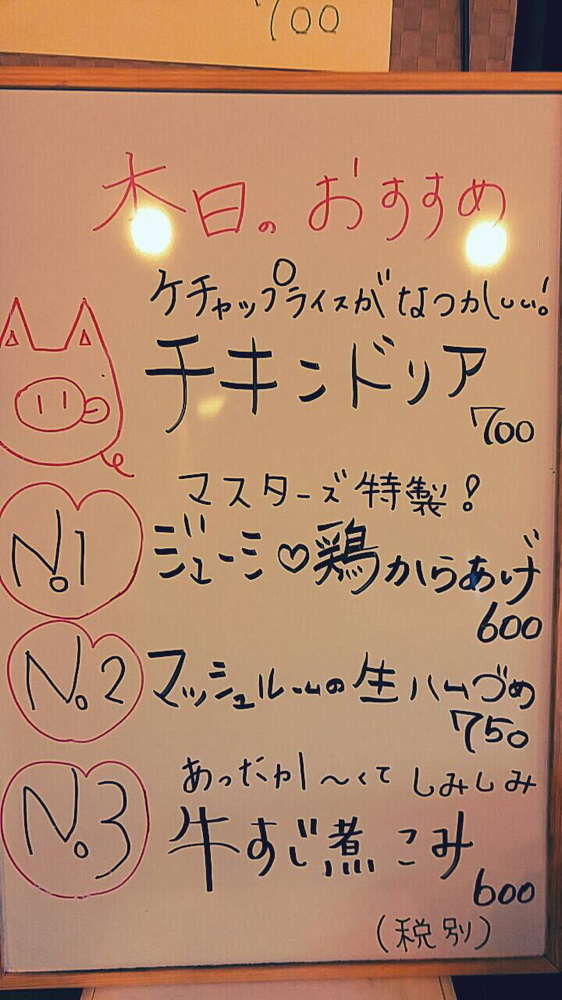 700
本日のおすすめ
ケチャップライスがなつかしい!
チキンドリア
700
マスターズ特製!
No.1 ジューシ♡鶏からあげ
600
No.2 マッシュルームの生ハムづめ
750
あったか〜くてしみしみ
No.3 牛すじ煮こみ
600
(税別)